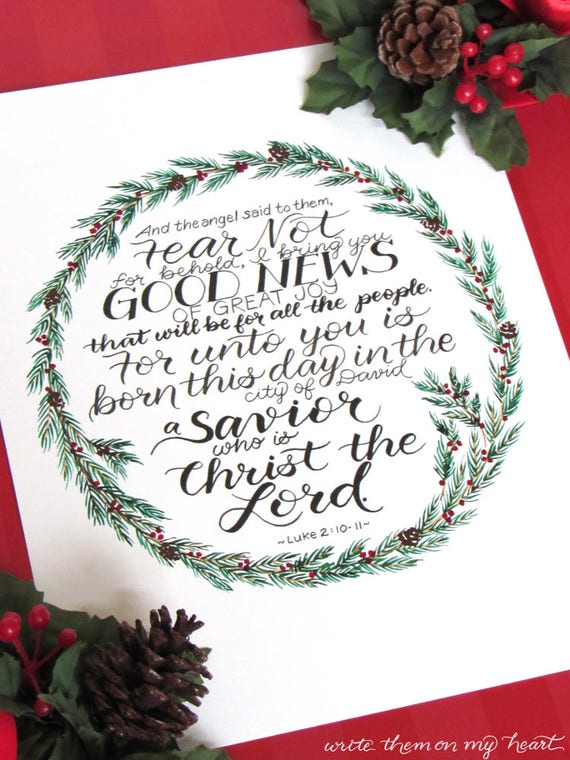 And the angel said to them,
Fear Not
for behold, I bring you
GOOD NEWS
OF GREAT JOY
that will be for all the people.
For unto you is
born this day in the
city of David
a Savior
who is
Christ the
Lord.
~Luke 2:10-11~
write them on my heart